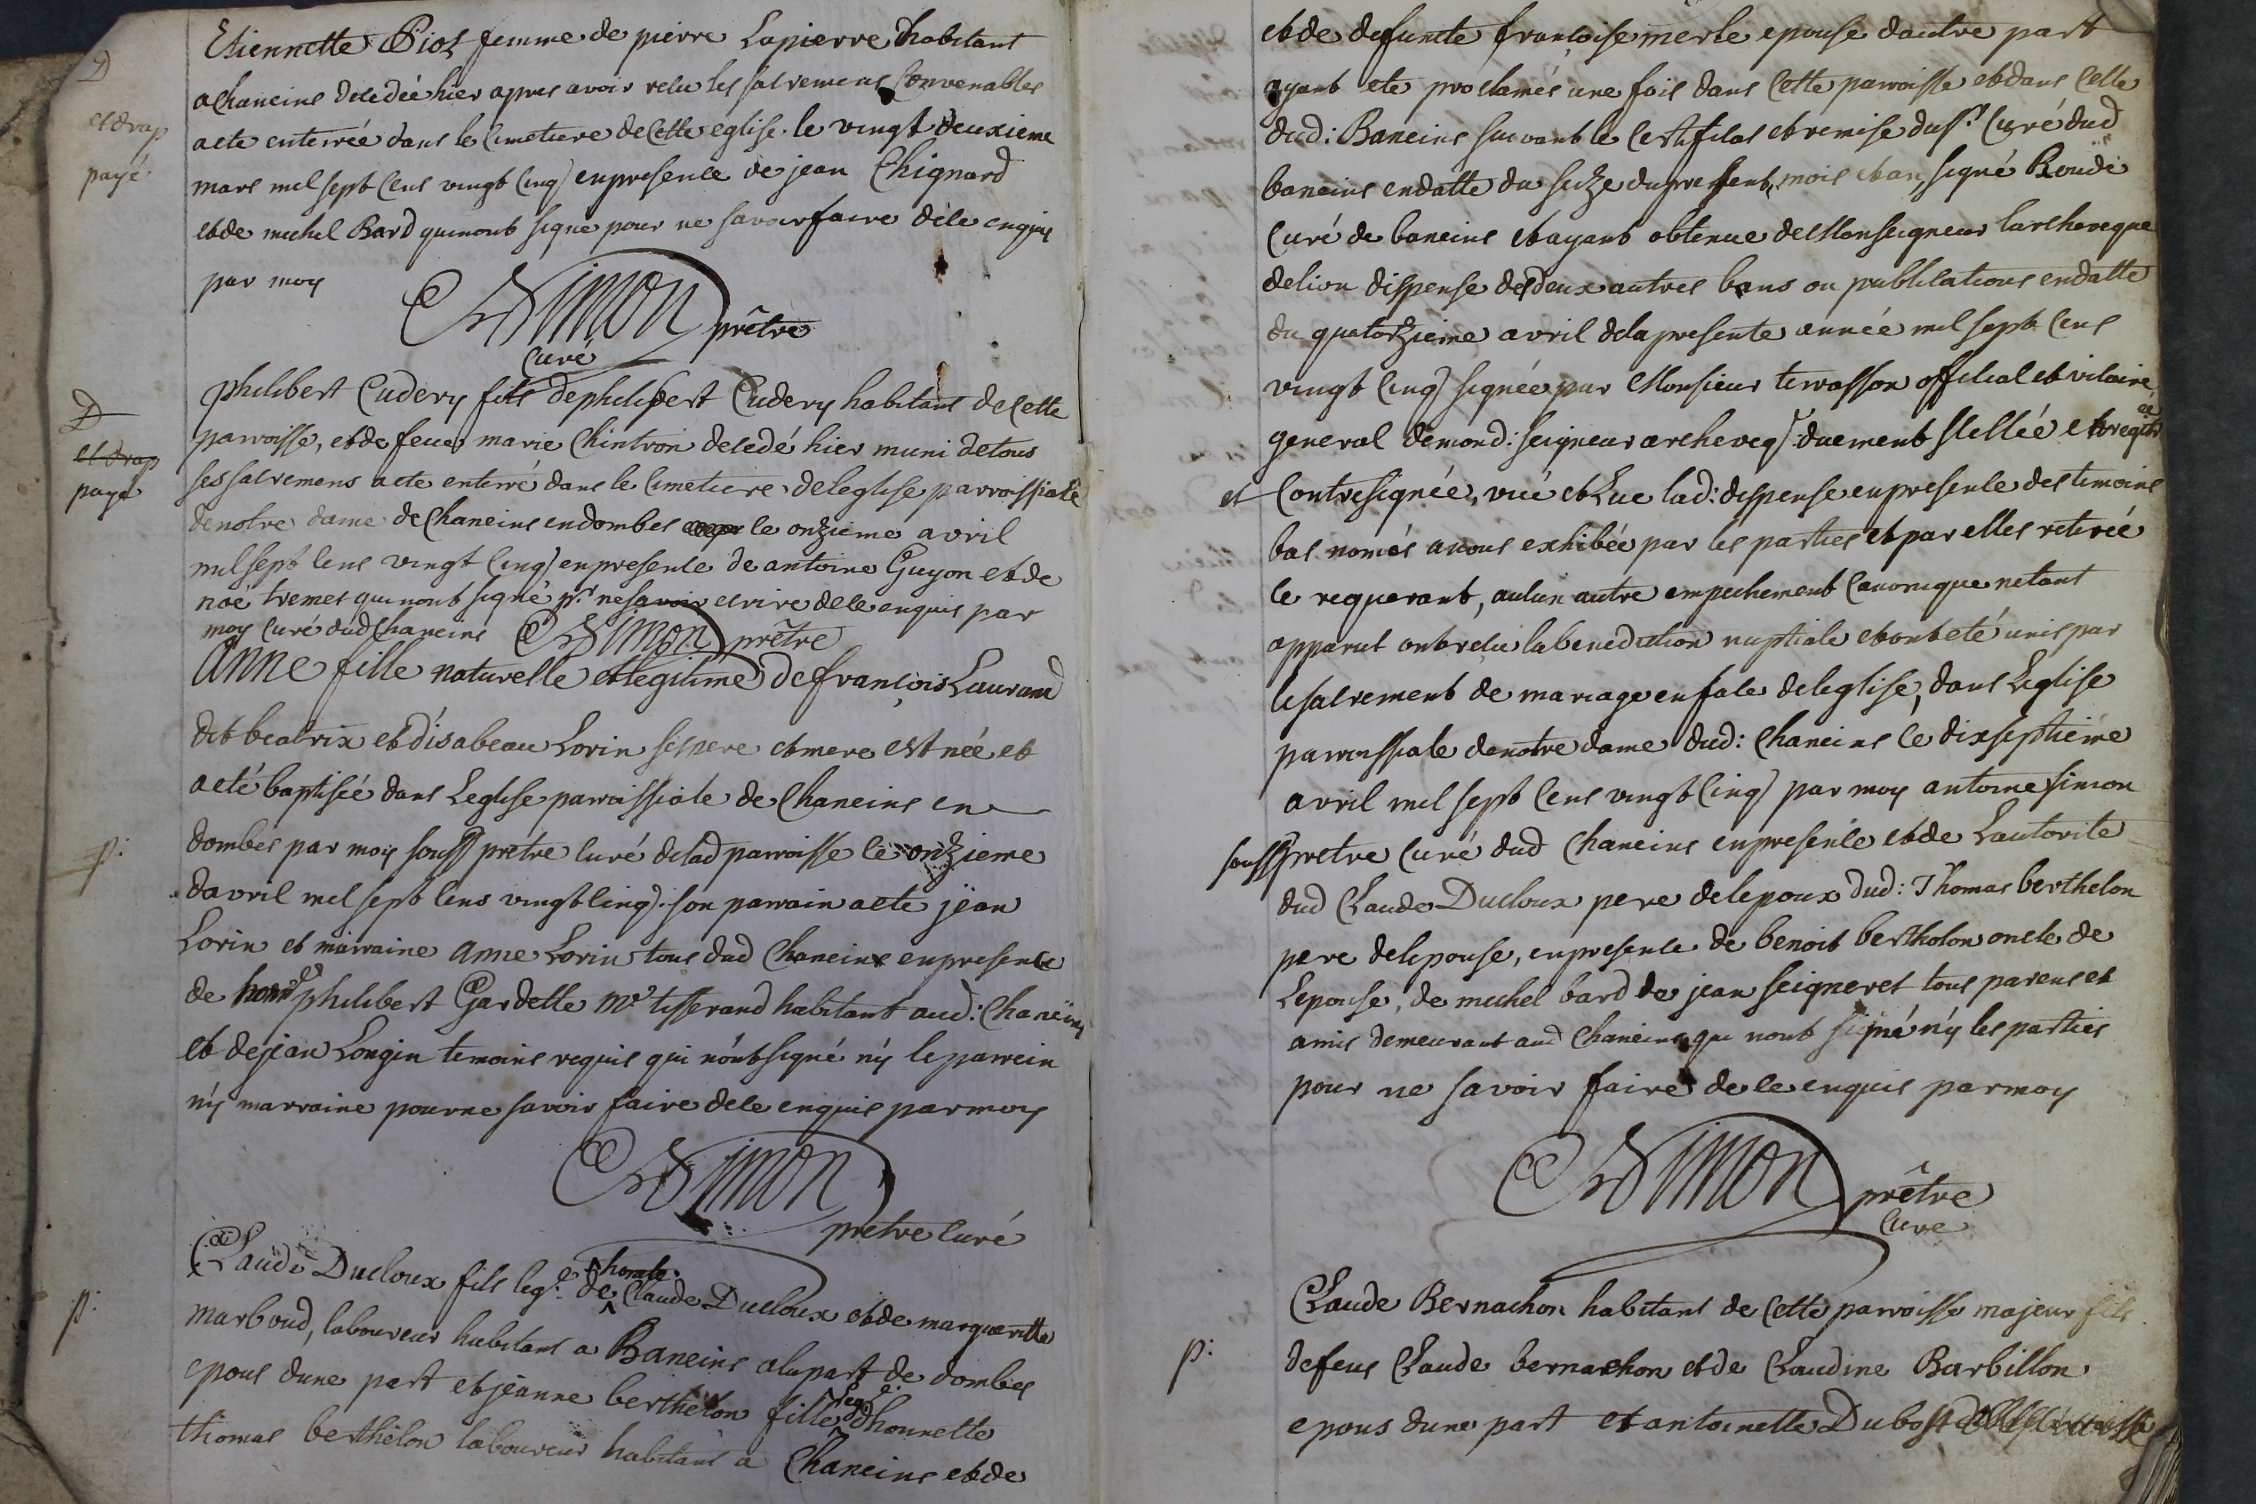 Etiennette Piot femme de pierre Lapierre habitant
D
a Chaneins decedée hier apres avoir recu les sacremens Convenables
et drap
a ete enterrée dans le Cimetiere de Cette eglise le vingt deuxieme
payé
mars mil sept Cens vingt Cinq en presence de jean Chignard
et de michel Bard qui nont signe pour ne savoir faire de ce enquis
par moy
Simon prêtre
Curé
D
et drap
payé
philibert Cudery fils de philibert Cudery habitant de Cette
parroisse, et de feue marie Chintron decedé hier muni de tous
ses sacremens a ete enterré dans le Cimetiere de leglise parroissiale
de notre dame de Chaneins en dombes le onzieme avril
mil sept Cens vingt Cinq en presence de antoine Guyon et de
noé tremes qui nont signé pr. ne savoir ecrire de ce enquis par
moy Curé dud Chaneins Simon prêtre
Anne fille naturelle et legitime de françois Laurand
dit beatrix et disabeau Lorin ses pere et mere est née et
a eté baptisée dans Leglise parroissiale de Chaneins en
p:
dombes par moy souss prétre Curé de lad parroisse le onzieme
davril mil sept Cens vingt Cinq. son parrain a ete jean
Lorin et marraine Anne Lorin tous dud Chaneins en presence
de philibert Gardette Me tisserand habitant aud: Chaneins
et de jean Longin temoins requis qui n'ont signé n'y le parrein
n'y marraine pour ne savoir faire de ce enquis par moy
Simon
prêtre Curé
p:
Claude Ducloux fils leg.e de honete Claude Ducloux et de margueritte
marboud, laboureur habitant a Baneins a la part de dombes
epous dune part et jeanne berthelon fille leg.e dhonnette
thomas berthelon laboureur habitant a Chaneins et de
et de defuncte françoise merle epouse dautre part
ayant ete proclamés une fois dans Cette parroisse et dans Celle
dud: Baneins suivant le Certificat et remise du sr. Curé dud
baneins en datte du seize du present mois et an, signé Roude
Curé de baneins et ayant obtenue de Monseigneur larcheveque
de lion dispense des deux autres bans ou publications en datte
du quatorzieme avril de la presente année mil sept Cens
vingt Cinq signée par Monsieur terrasson official et vicaire
general de mond: seigneur archeveq. duement scellée et
et Contresignée, vüé et Lue lad: dispense en presence des temoins
bas només a nous exhibée par les parties et par elles retirée
le requerant, aucun autre empechement Canonique netant
apparut ont recu la benediction nuptiale et ont eté unis par
le sacrement de mariage en face de leglise, dans Leglise
parroissiale de notre dame dud: Chaneins le dixseptiéme
avril mil sept Cens vingt Cinq par moy antoine simon
souss prêtre Curé dud Chaneins en presence et de Lautorite
dud Claude Ducloux pere de lepoux dud: Thomas berthelon
pere de lepouse, en presence de benoit bertholon oncle de
Lepouse, de michel bard de jean seigneret tous parens et
amis demeurant aud Chaneins qui nont signé n'y les parties
pour ne savoir faire de ce enquis par moy
Simon prêtre
Curé
Claude Bernachon habitant de Cette parroisse majeur fils
p:
de feus Claude bernachon et de Claudine Barbillon
epous dune part et antoinette Dubost